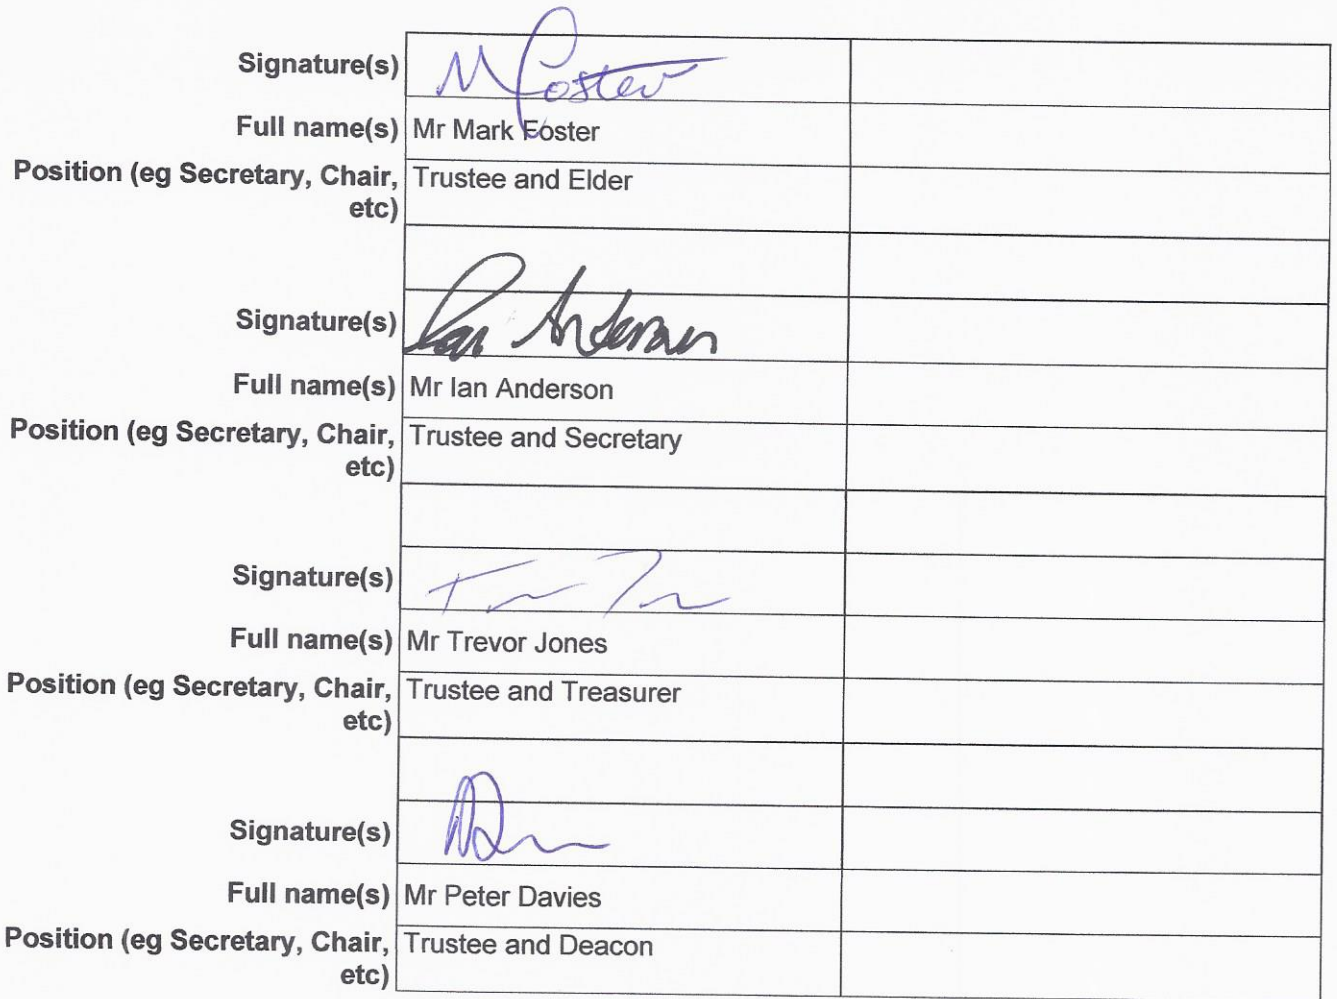 Signature(s) M Foster
Full name(s) Mr Mark Foster
Position (eg Secretary, Chair, Trustee and Elder
etc)
Signature(s) Ian Anderson
Full name(s) Mr Ian Anderson
Position (eg Secretary, Chair, Trustee and Secretary
etc)
Signature(s)
Full name(s) Mr Trevor Jones
Position (eg Secretary, Chair, Trustee and Treasurer
etc)
Signature(s)
Full name(s) Mr Peter Davies
Position (eg Secretary, Chair, Trustee and Deacon
etc)